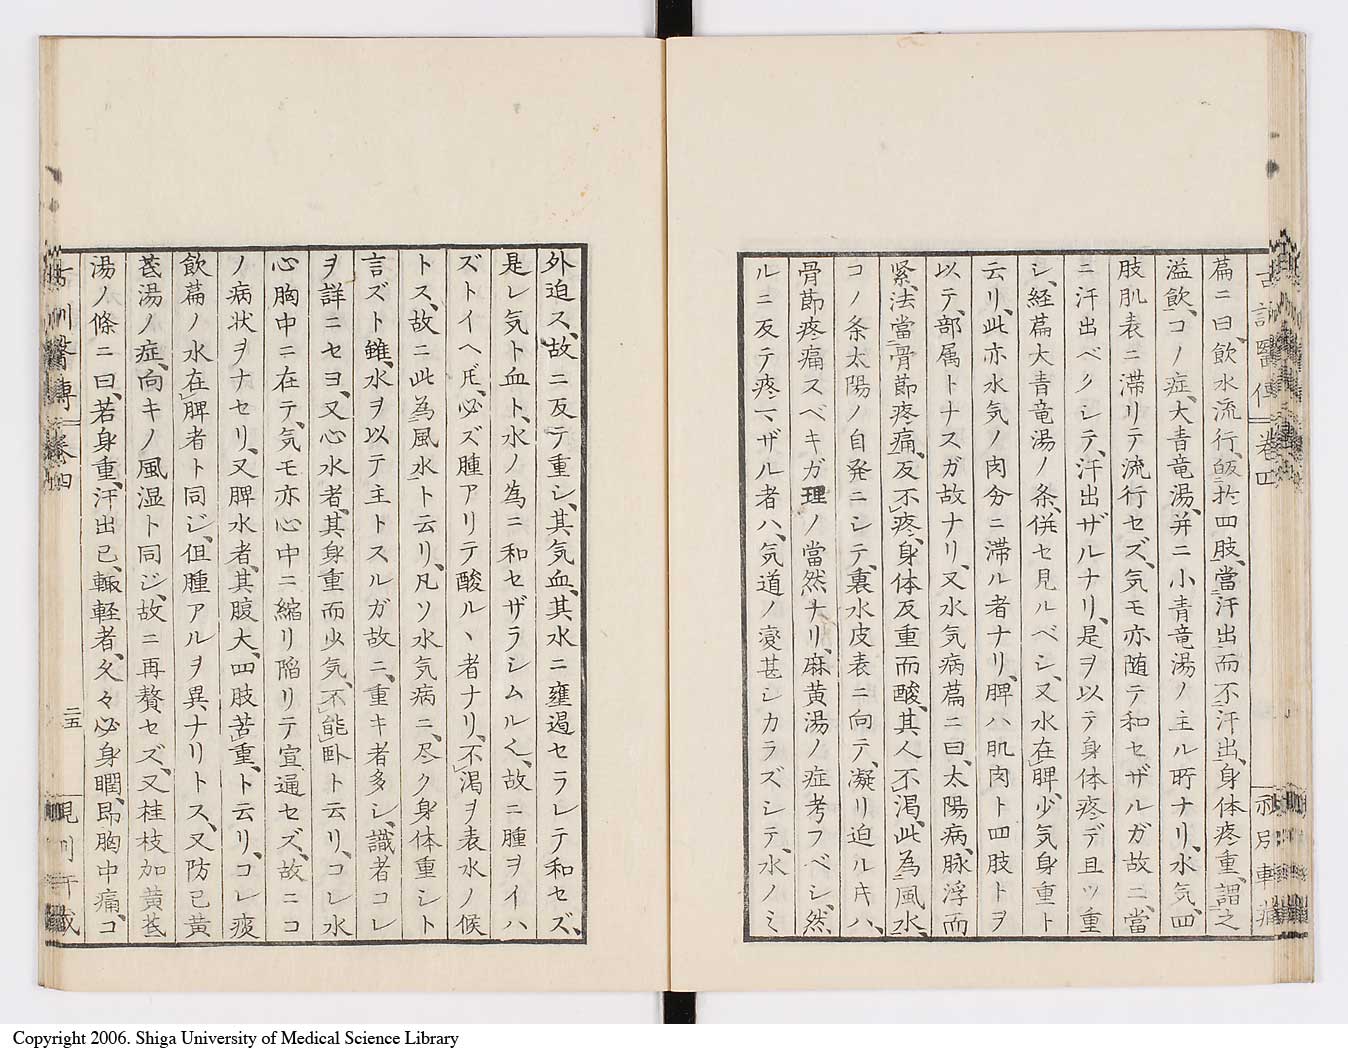 篇ニ曰、飲水流行、皈於四肢、當汗出而不汗出、身体疼重、謂之
溢飲、コノ症、大青竜湯、并ニ小青竜湯ノ主ル所ナリ、水気、四
肢肌表ニ滞リテ流行セズ、気モ亦随テ和セザルガ故ニ、當
ニ汗出ベクシテ、汗出ザルナリ、是ヲ以テ身体疼デ且ツ重
シ、経篇大青竜湯ノ条、併セ見ルベシ、又水在脾、少気身重ト
云リ、此亦水気ノ肉分ニ滞ル者ナリ、脾ハ肌肉ト四肢トヲ
以テ、部属トナスガ故ナリ、又水気病篇ニ曰、太陽病、脉浮而
緊、法當骨節疼痛、反不疼、身体反重而酸、其人不渇、此為風水、
コノ条太陽ノ自発ニシテ、裏水皮表ニ向テ、凝リ迫ル片ハ、
骨節疼痛スベキガ理ノ當然ナリ、麻黄湯ノ症考フベシ、然
ルニ反テ疼マザル者ハ、気道ノ変甚シカラズシテ、水ノミ
古訓醫傳 巻四
外迫ス、故ニ反テ重シ、其気血、其水ニ壅遏セラレテ和セズ、
是レ気ト血ト、水ノ為ニ和セザラシムル也、故ニ腫ヲイハ
ズトイヘ𪜈、必ズ腫アリテ酸ルヽ者ナリ、不渇ヲ表水ノ候
トス、故ニ此為風水ト云リ、凡ソ水気病ニ、尽ク身体重シト
言ズト雖、水ヲ以テ主トスルガ故ニ、重キ者多シ、識者コレ
ヲ詳ニセヨ、又心水者、其身重而少気、不能臥ト云リ、コレ水
心胸中ニ在テ、気モ亦心中ニ縮リ陥リテ宣通セズ、故ニコ
ノ病状ヲナセリ、又脾水者、其腹大、四肢苦重、ト云リ、コレ痰
飲篇ノ水在脾者ト同ジ、但腫アルヲ異ナリトス、又防已黄
芪湯ノ症、向キノ風湿ト同ジ、故ニ再贅セズ、又桂枝加黄芪
湯ノ條ニ曰、若身重、汗出已、輙軽者、久々必身瞤、昂胸中痛、コ
古訓醫傳 巻四
二五